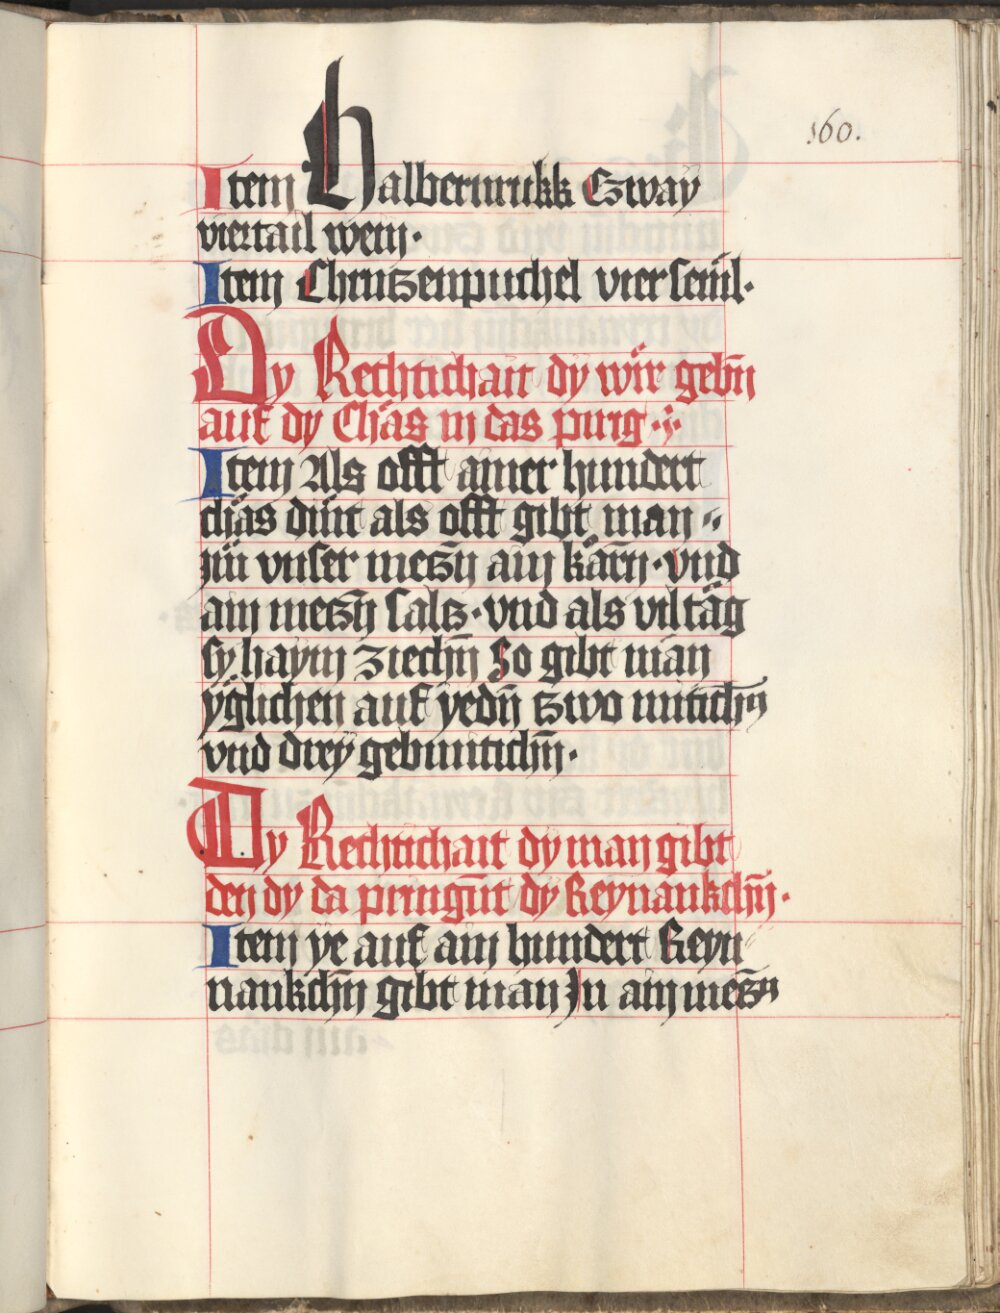 160.
Item Halbermrukk Czway
viertail wein·
Item Chrutzenpuchel vier seml·
Dy Rechtichait dy wir gebn̄
auf dy Chäs in das purg
Item Als offt ainer hundert
chäs dint als offt gibt man
zü vnser meczn̄ ain kärn·vnd
ain meczn̄ salcz·vnd als vil täg
sy haym ziechn̄ So gibt man
yglichen auf yedn̄ czwo mutichn̄
vnd drey gebmutichn̄·
Dy Rechtichait dy man gibt
den dy da pringn̄t dy Reynankchn̄·
Item ye auf ain hundert Reyn
nankchn̄ gibt man In ain meczn̄